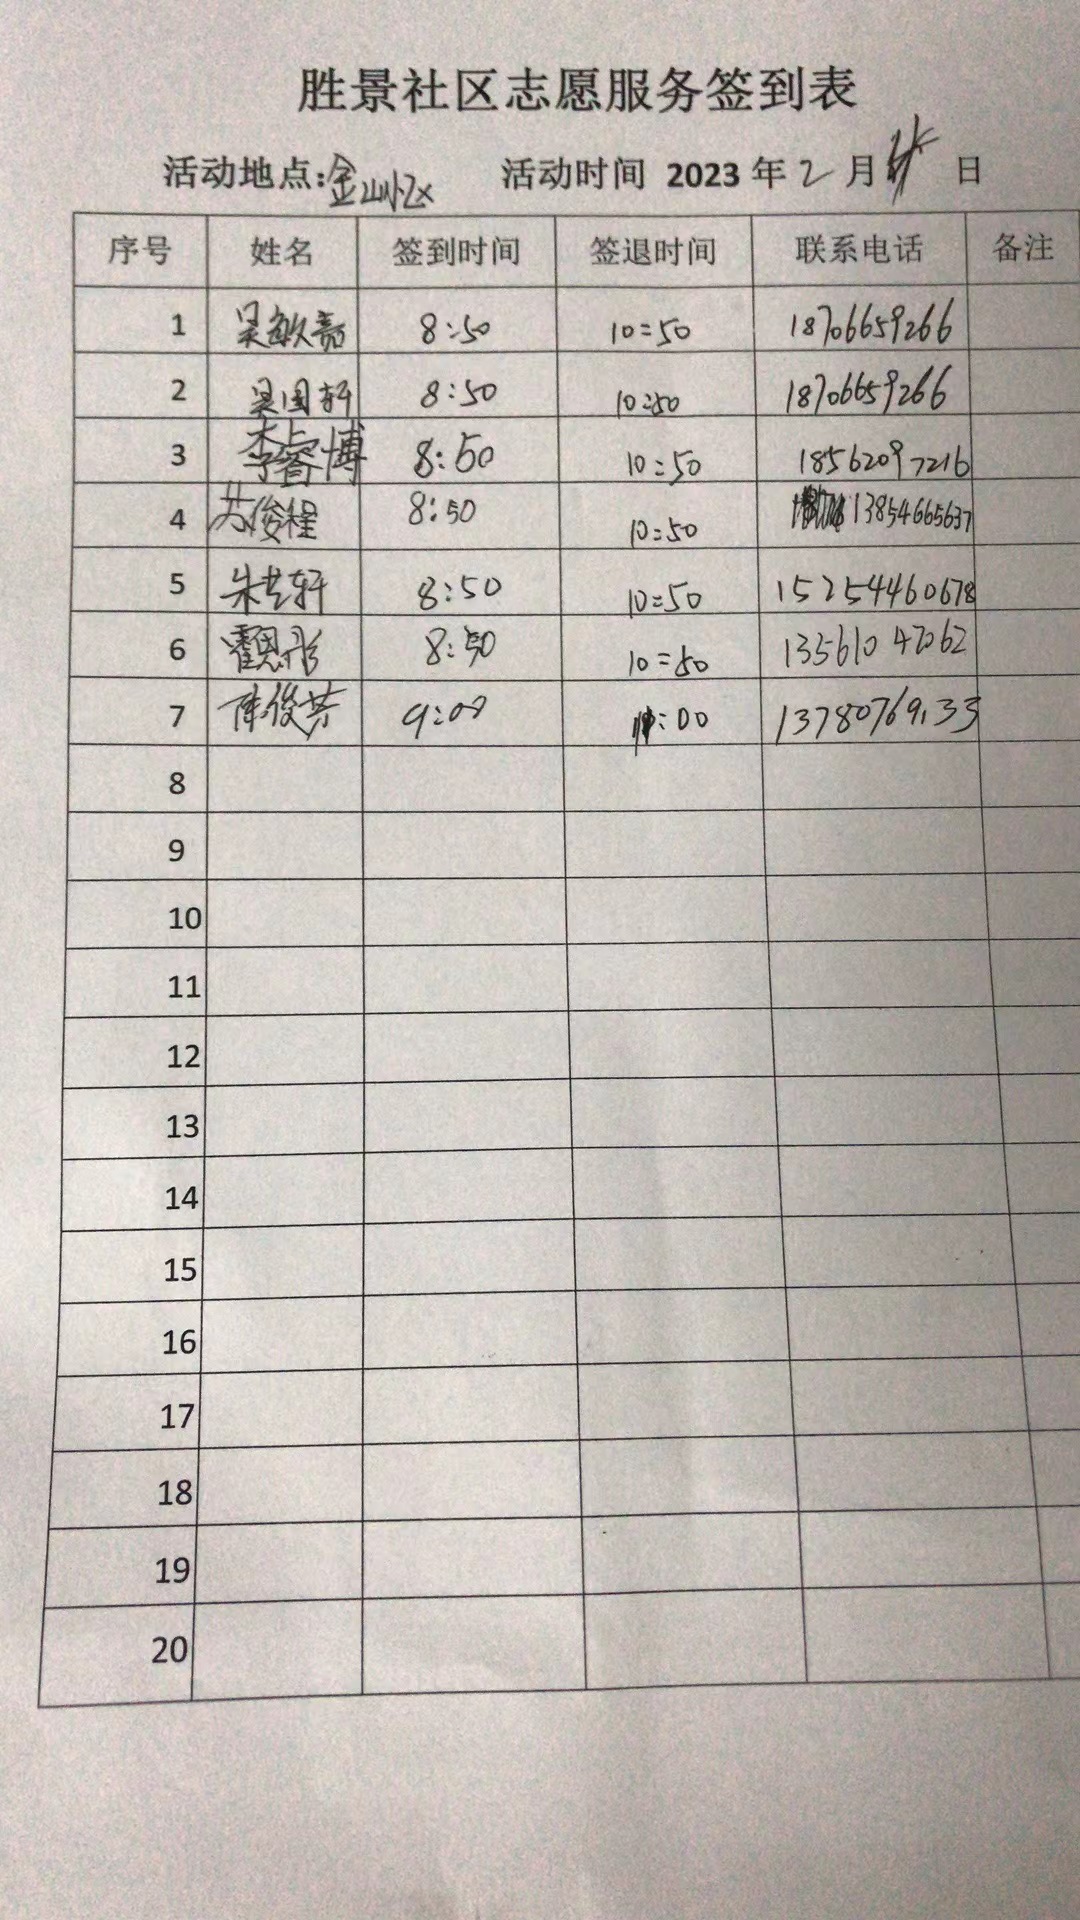 胜景社区志愿服务签到表
活动地点:金山小区 活动时间 2023 年 2 月 日
序号 姓名 签到时间 签退时间 联系电话 备注
1 吴敏嘉 8:50 10:50 18706659266
2 吴国轩 8:50 10:50 18706659266
3 李睿博 8:50 10:50 18562097216
4 苏俊程 8:50 10:50 13854665637
5 朱艺轩 8:50 10:50 15254460678
6 霍思彤 8:50 10:50 13561047062
7 陈俊芳 9:00 :00 13780769133
8
9
10
11
12
13
14
15
16
17
18
19
20